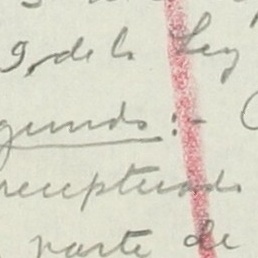 9, de la Ley
gundo:-
receptuado
parte de